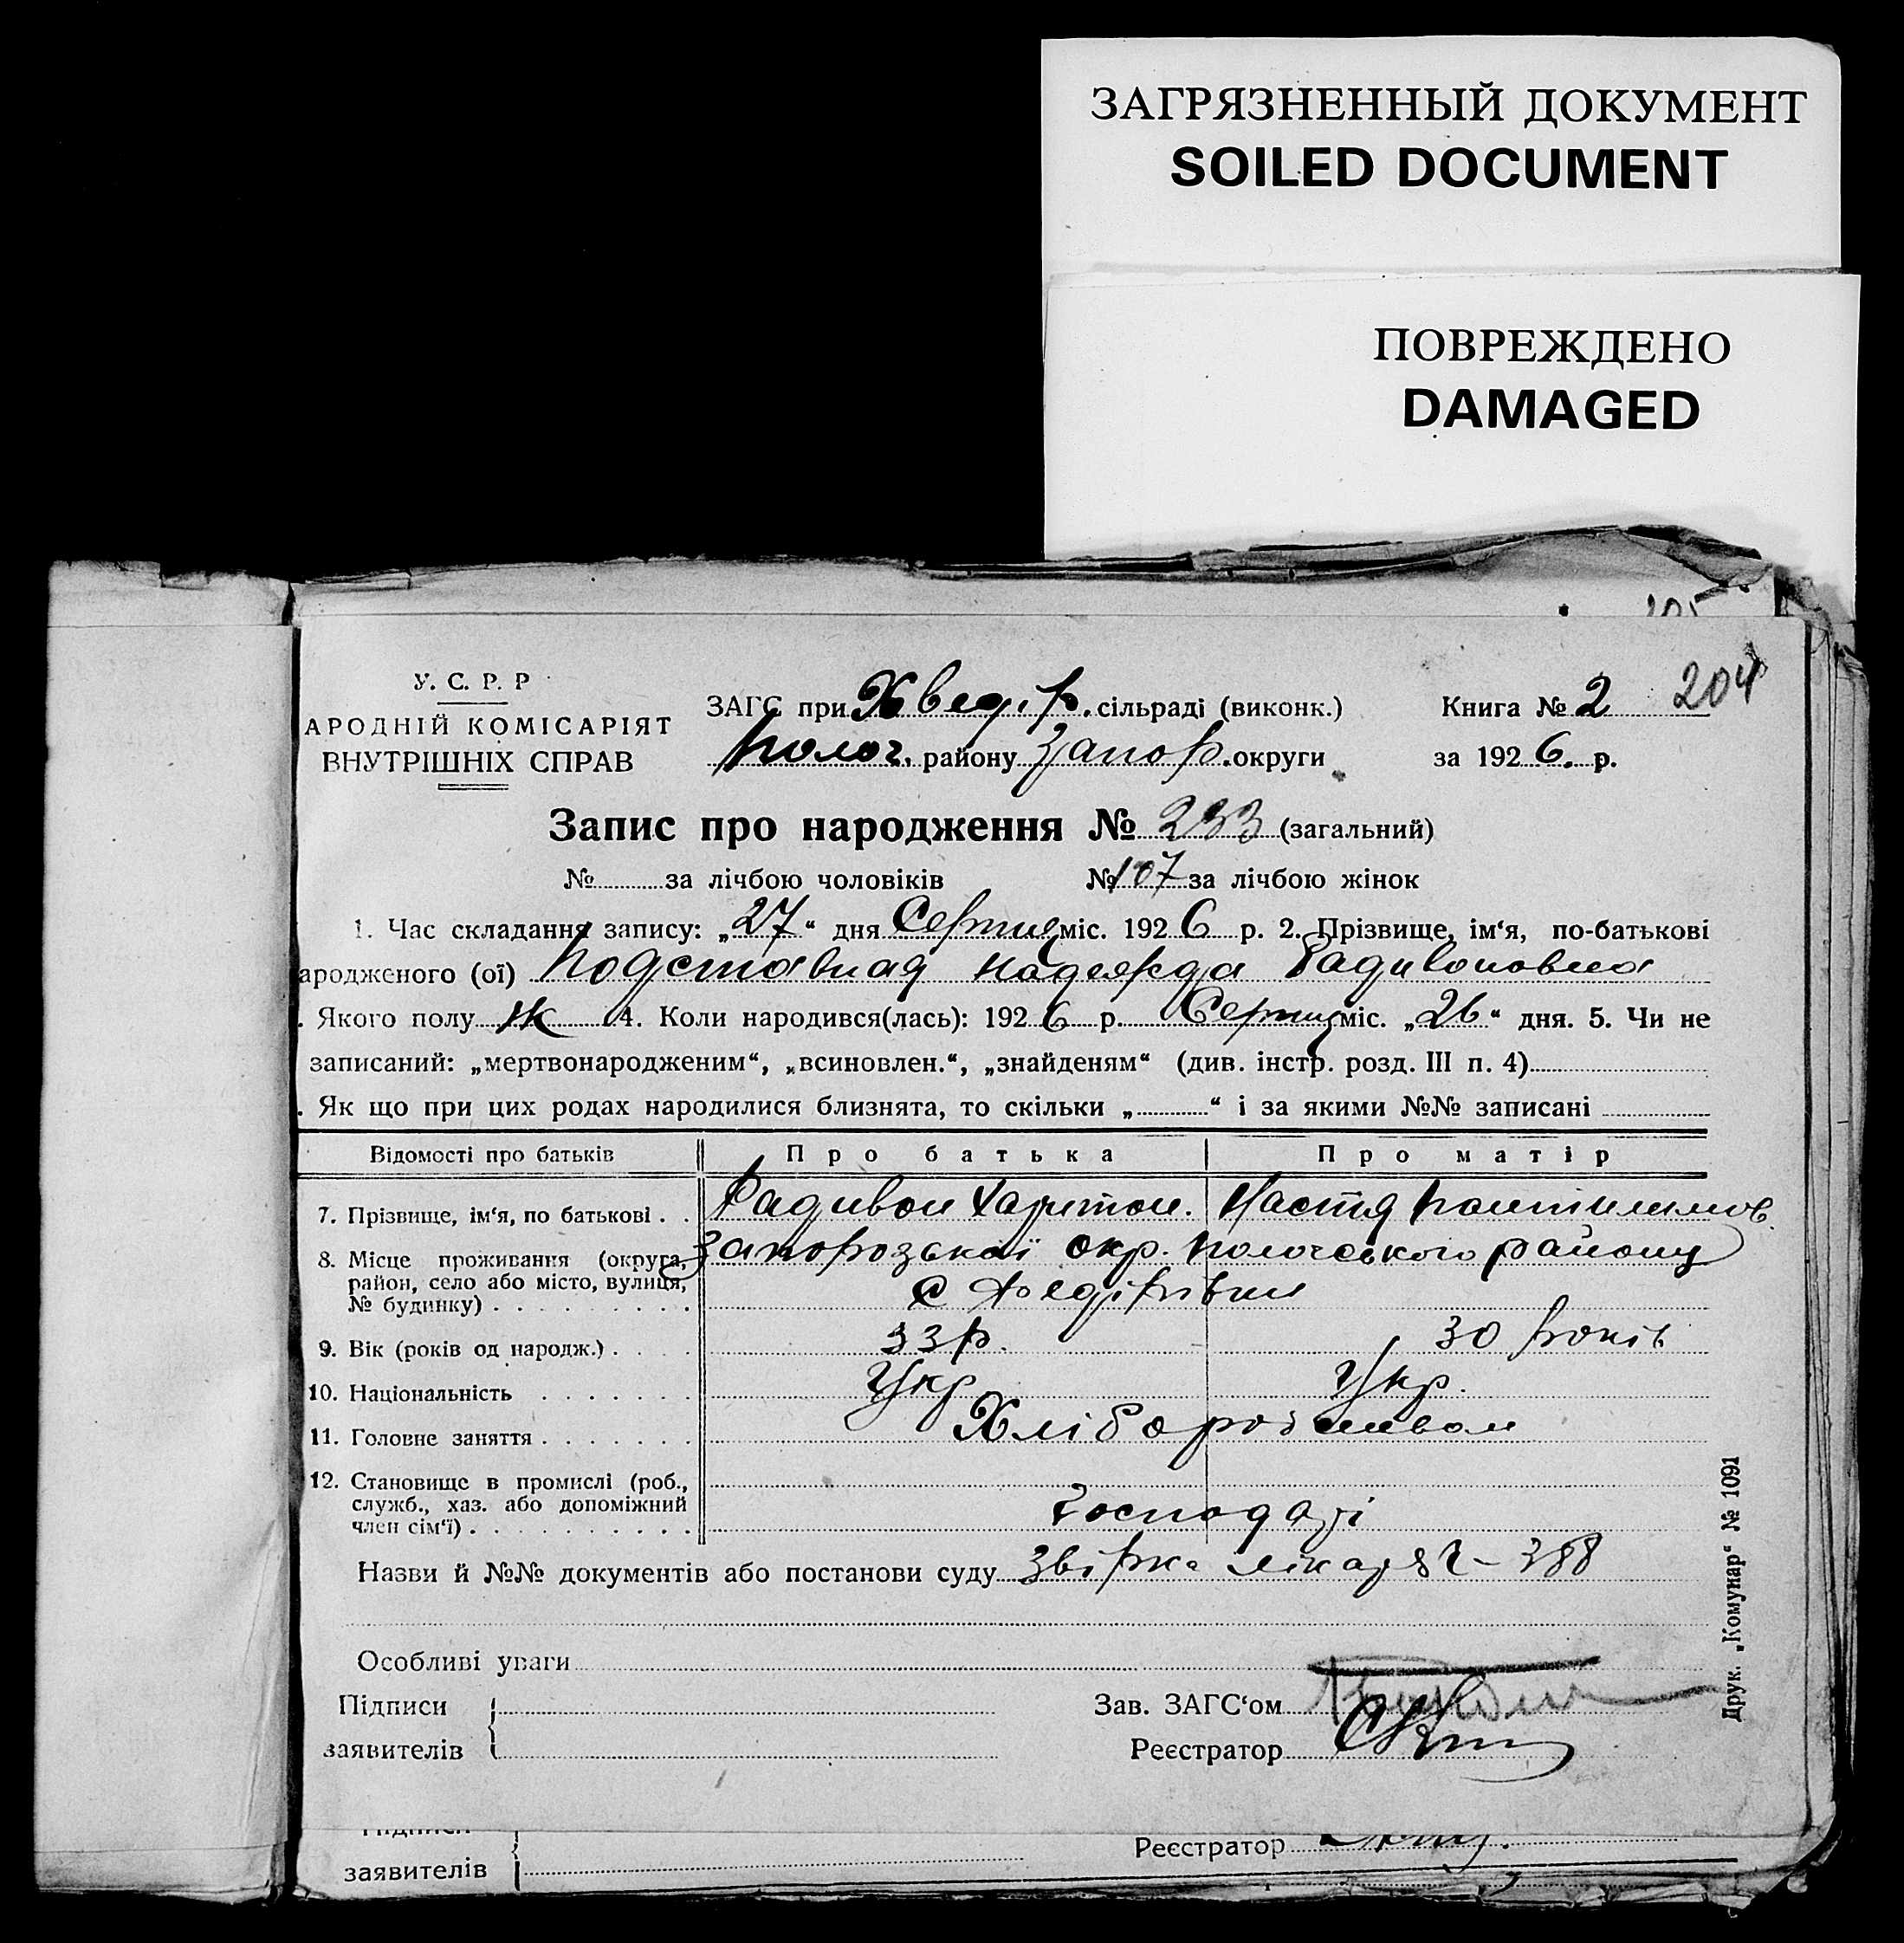 ЗАГРЯЗНЕННЫЙ ДОКУМЕНТ
SOILED DOCUMENT
ПОВРЕЖДЕНО
DAMAGED
205
204
У. С. Р. Р
АРОДНІЙ КОМІСАРІЯТ
ВНУТРІШНІХ СПРАВ
ЗАГС при Хвед.р. сільраді (виконк.)
Полог. району Запор. округи
Книга № 2
за 1926. р.
Запис про народження № 233 (загальний)
№ за лічбою чоловіків № 107 за лічбою жінок
1. Час складання запису: „27“ дня Серпня міс. 1926 р. 2. Прізвище, ім‘я, по-батькові
ародженого (ої) Подставная Надежда Радивоновна
. Якого полу Ж 4. Коли народився(лась): 1926 р. Серпня міс. „26“ дня. 5. Чи не
записаний: „мертвонародженим“, „всиновлен.“, „знайденям“ (див. інстр. розд. III п. 4)
. Як що при цих родах народилися близнята, то скільки „ “ і за якими №№ записані
Відомості про батьків Про батька Про матір
7. Прізвище, ім‘я, по батькові . . Радивон Харитон. Настя Пантилимов.
8. Місце проживання (округа, район, село або місто, вулиця, № будинку) Запорозської окр. Пологського району
с Федірівки
9. Вік (років од народж.) 33 р. 30 років
10. Національність Укр Укр.
11. Головне заняття Хлібороб
12. Становище в промислі (роб., служб., хаз. або допоміжний член сім‘ї) Господарі
Назви й №№ документів або постанови суду лікаря 388
Особливі уваги
Підписи
заявителів
Зав. ЗАГС‘ом
Реєстратор
Друк. „Комунар“ № 1091
Підписи
заявителів
Реєстратор